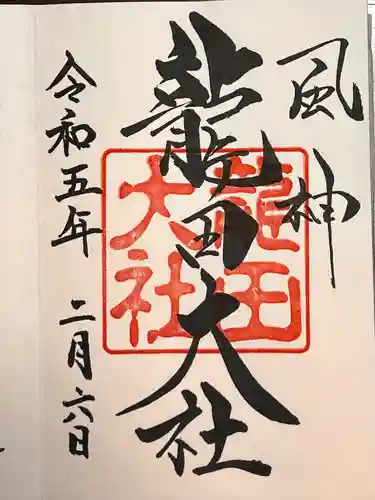 風神
龍田大社
龍田大社
令和五年 二月六日